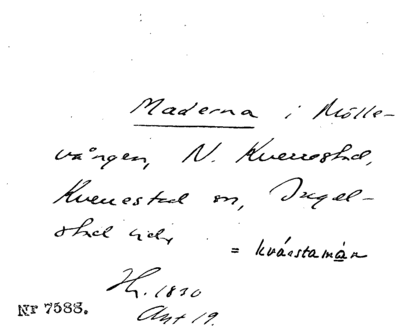 Maderna i Mölle-
vången, N. Kverrestad,
Kverrestad sn, Ingel-
stad hd,
= kváestamán
H. 1830
Akt 19.
Nr 7588.